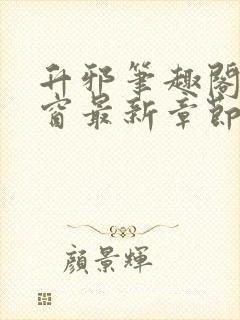 升邪筆趣閣
窗最新章節
顏景輝